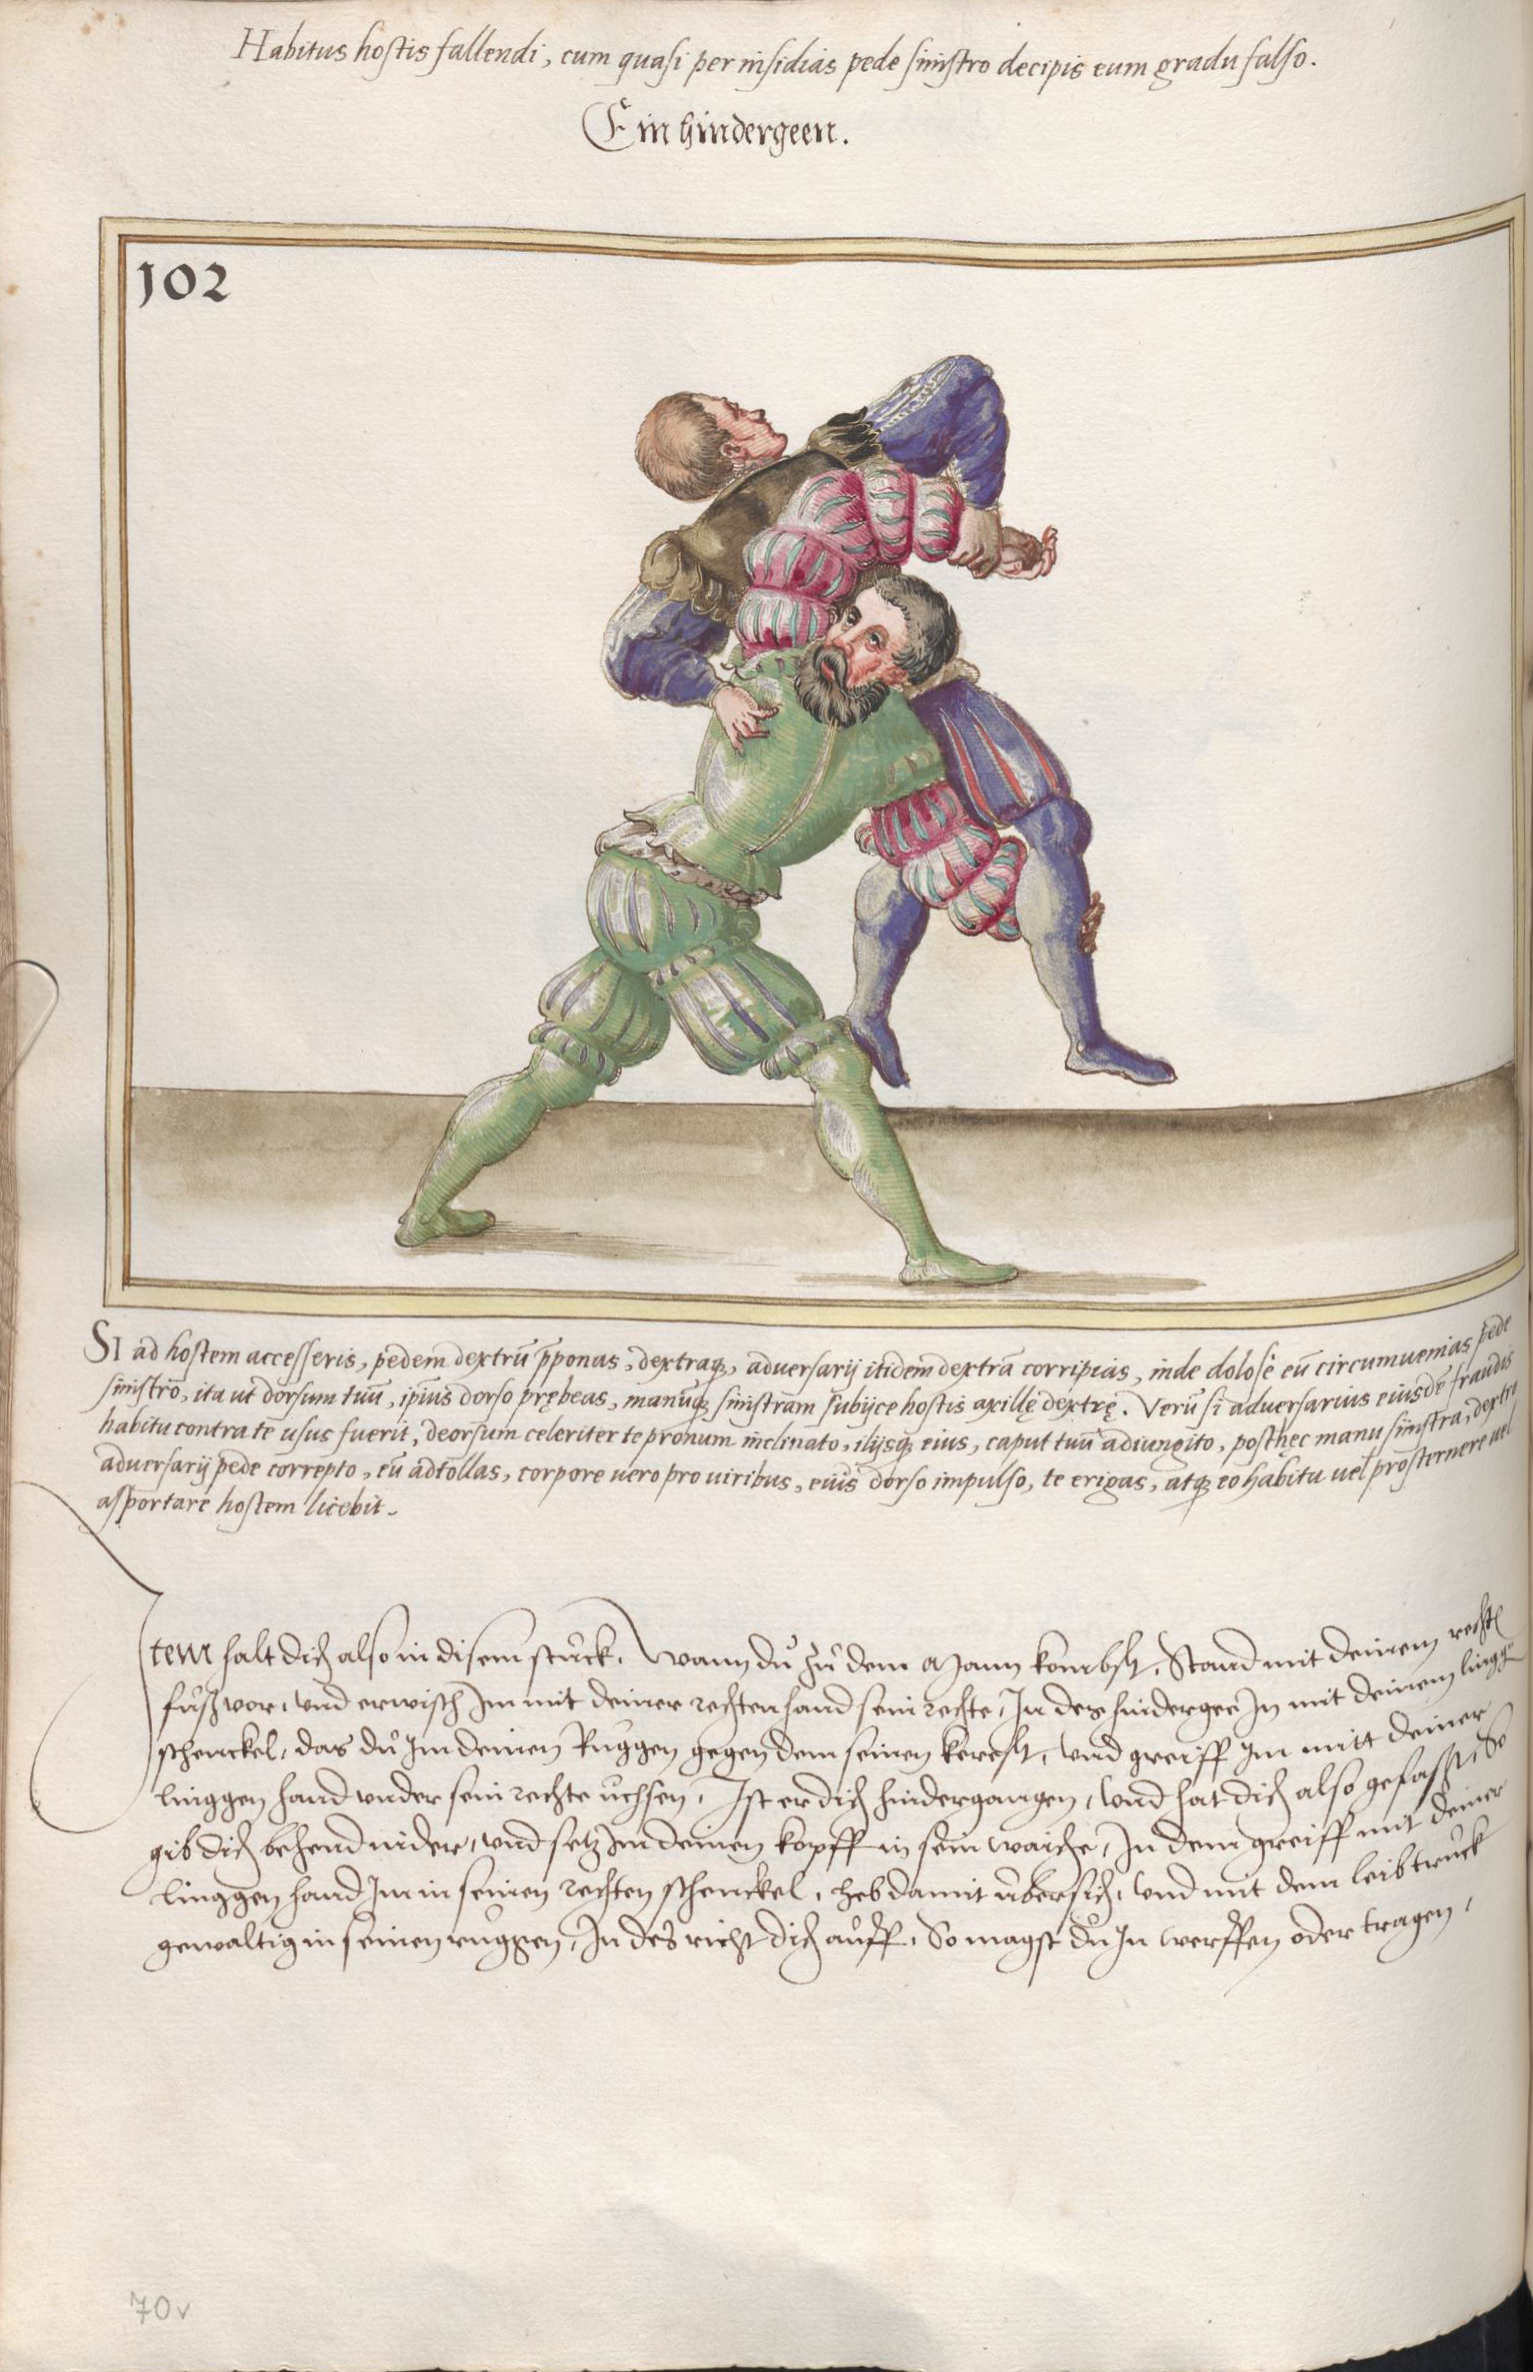 Habitus hostis fallendi, cum quasi per insidias pede sinistro decipis eum gradu falso.
Ein hindergeen.
102
SI ad hostem accesseris, pedem dextrū p̄ponas, dextraq; adversarij itidem dextrā corripias, inde dolosè eū circumuenias pede
sinistro, ita ut dorsum tuū, ipius dorso prębeas, manūq; sinistram subijce hostis axillę dextrę. Verū si adversarius eiusdē fraudis
habitu contra te usus fuerit, deorsum celeriter te pronum inclinato, ilijsq; eius, caput tuū adiungito, posthęc manu sinistra, dextro
adversarij pede correpto, eū adtollas, corpore uero pro viribus, eius dorso impulso, te erigas, atq; eo habitu uel prosternere uel
asportare hostem licebit.
Item halt dich also in disem stuck, Wann dů zů dem Mann kombst, Stand mit deinem rechten
fůß vor, vnd erwisch Im mit deiner rechten hand sein rechte, In des hindergee In mit deinem linggen
schenckel, das dů Im deinen Ruggen gegen dem seinen kerest, vnd greiff Im mitt deiner
linggen hand vnder sein rechte uchsen, Ist er dich hindergangen, vnd hat dich also gefasst, So
gib dich behend nider, vnd setz Im deinen kopff in sein waiche, In dem greiff mit deiner
linggen hand Im in seinen rechten schenckel, heb damit ubersich, vnd mit dem leib truck
gewaltig in seinen ruggen, In des richt dich auff, So magst dů In werffen oder tragen,
70v